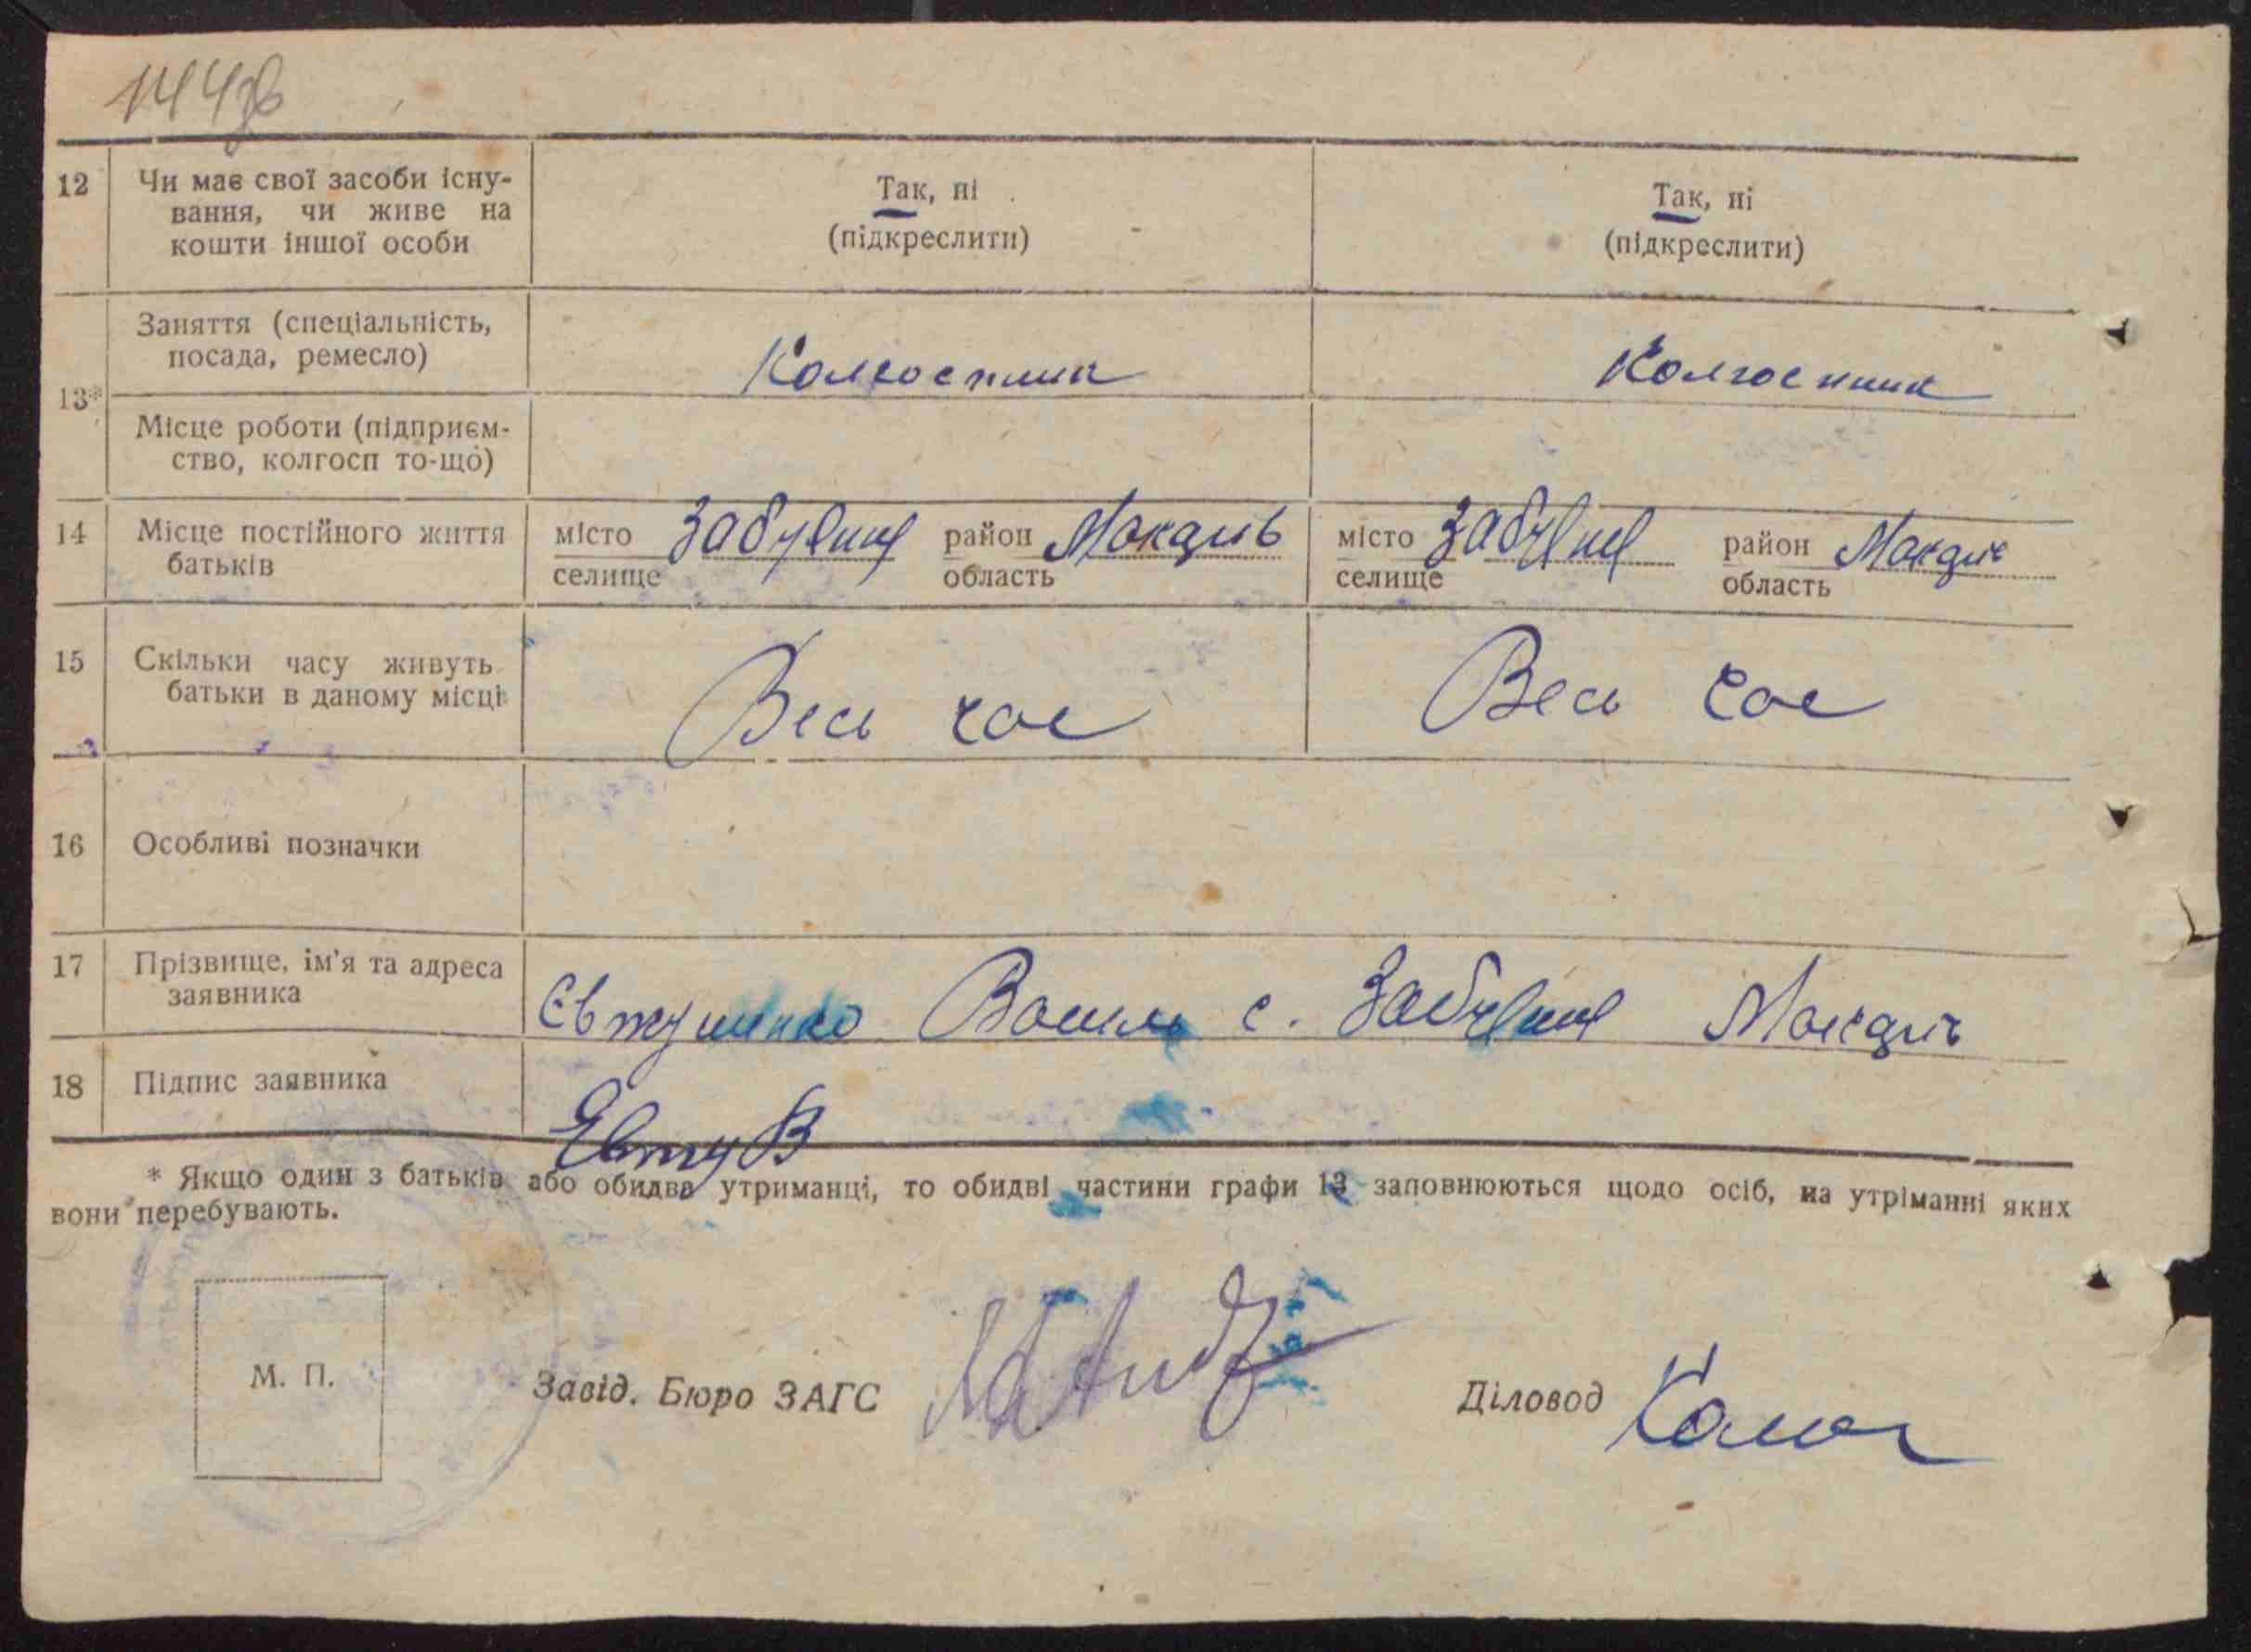 12 Чи має свої засоби існу-
вання, чи живе на
кошти іншої особи
Так, ні
(підкреслити)
Так, ні
(підкреслити)
13*
Заняття (спеціальність,
посада, ремесло)
Колгоспник
Колгоспник
Місце роботи (підприєм-
ство, колгосп то-що)
14 Місце постійного життя
батьків
місто
селище
район
область
місто
селище
район
область
15 Скільки часу живуть
батьки в даному місці
Весь час
Весь час
16 Особливі позначки
17 Прізвище, ім'я та адреса
заявника
Євтушенко Василь с.
18 Підпис заявника
* Якщо один з батьків або обидва утриманці, то обидві частини графи 13 заповнюються щодо осіб, на утріманні яких
вони перебувають.
М. П.
Завід. Бюро ЗАГС
Діловод